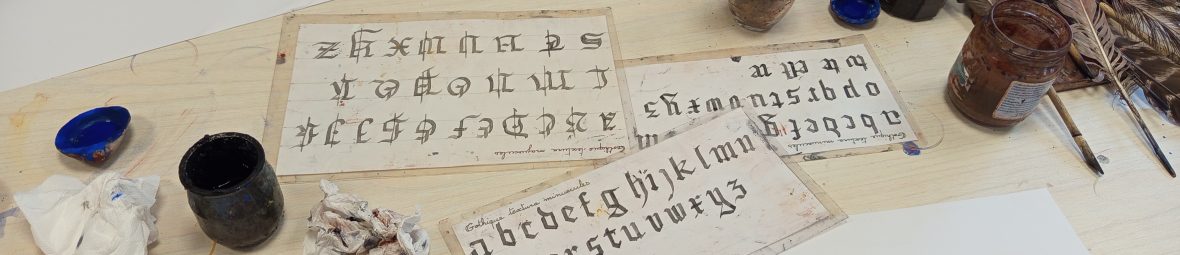 Gothique textura majuscules
A B C D E F G H I J K
L M N O P Q R
S T U V W X Y Z
Gothique textura minuscules
a b c d e f g
o p q r s t u v w x y z
Gothique textura minuscules
a b c d e f g h i j k l m n
r s t u v w x y z